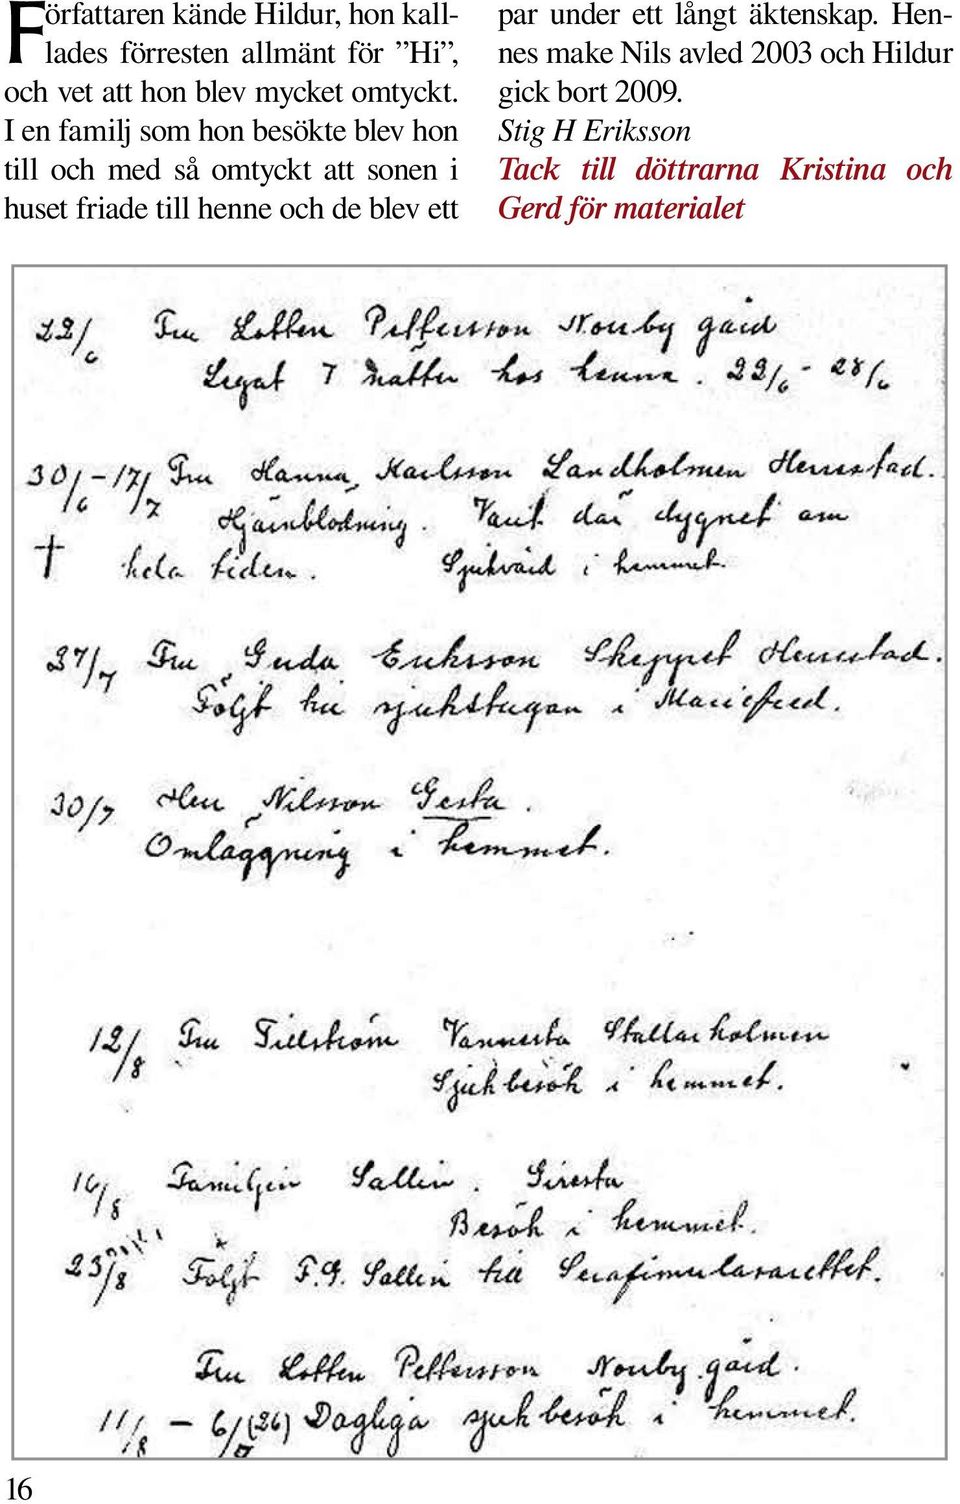 Författaren kände Hildur, hon kall-
lades förresten allmänt för ”Hi”,
och vet att hon blev mycket omtyckt.
I en familj som hon besökte blev hon
till och med så omtyckt att sonen i
huset friade till henne och de blev ett
par under ett långt äktenskap. Hen-
nes make Nils avled 2003 och Hildur
gick bort 2009.
Stig H Eriksson
Tack till döttrarna Kristina och
Gerd för materialet
22/6 Fru Lotten Pettersson Norrby gård
Legat 7 nätter hos henna. 22/6 - 28/6
30/6 - 17/7 Fru Hanna Karlsson Landholmen Herrestad.
Hjärnblödning. Varit där dygnet om
† hela tiden. Sjukvård i hemmet.
27/7 Fru Gerda Eriksson Skeppet Herrestad.
Följt till sjukstugan i Mariefred.
30/7 Herr Nilsson Gesta.
Omläggning i hemmet.
12/8 Fru Tillström Vannesta Stallarholmen
Sjukbesök i hemmet.
16/8 Familjen Sallin. Giresta
Besök i hemmet.
23/8 Följt F.G. Sallin till Serafimerlasarettet.
Fru Lotten Pettersson Norrby gård.
11/8 - 6/ (26) Dagliga sjukbesök i hemmet.
16